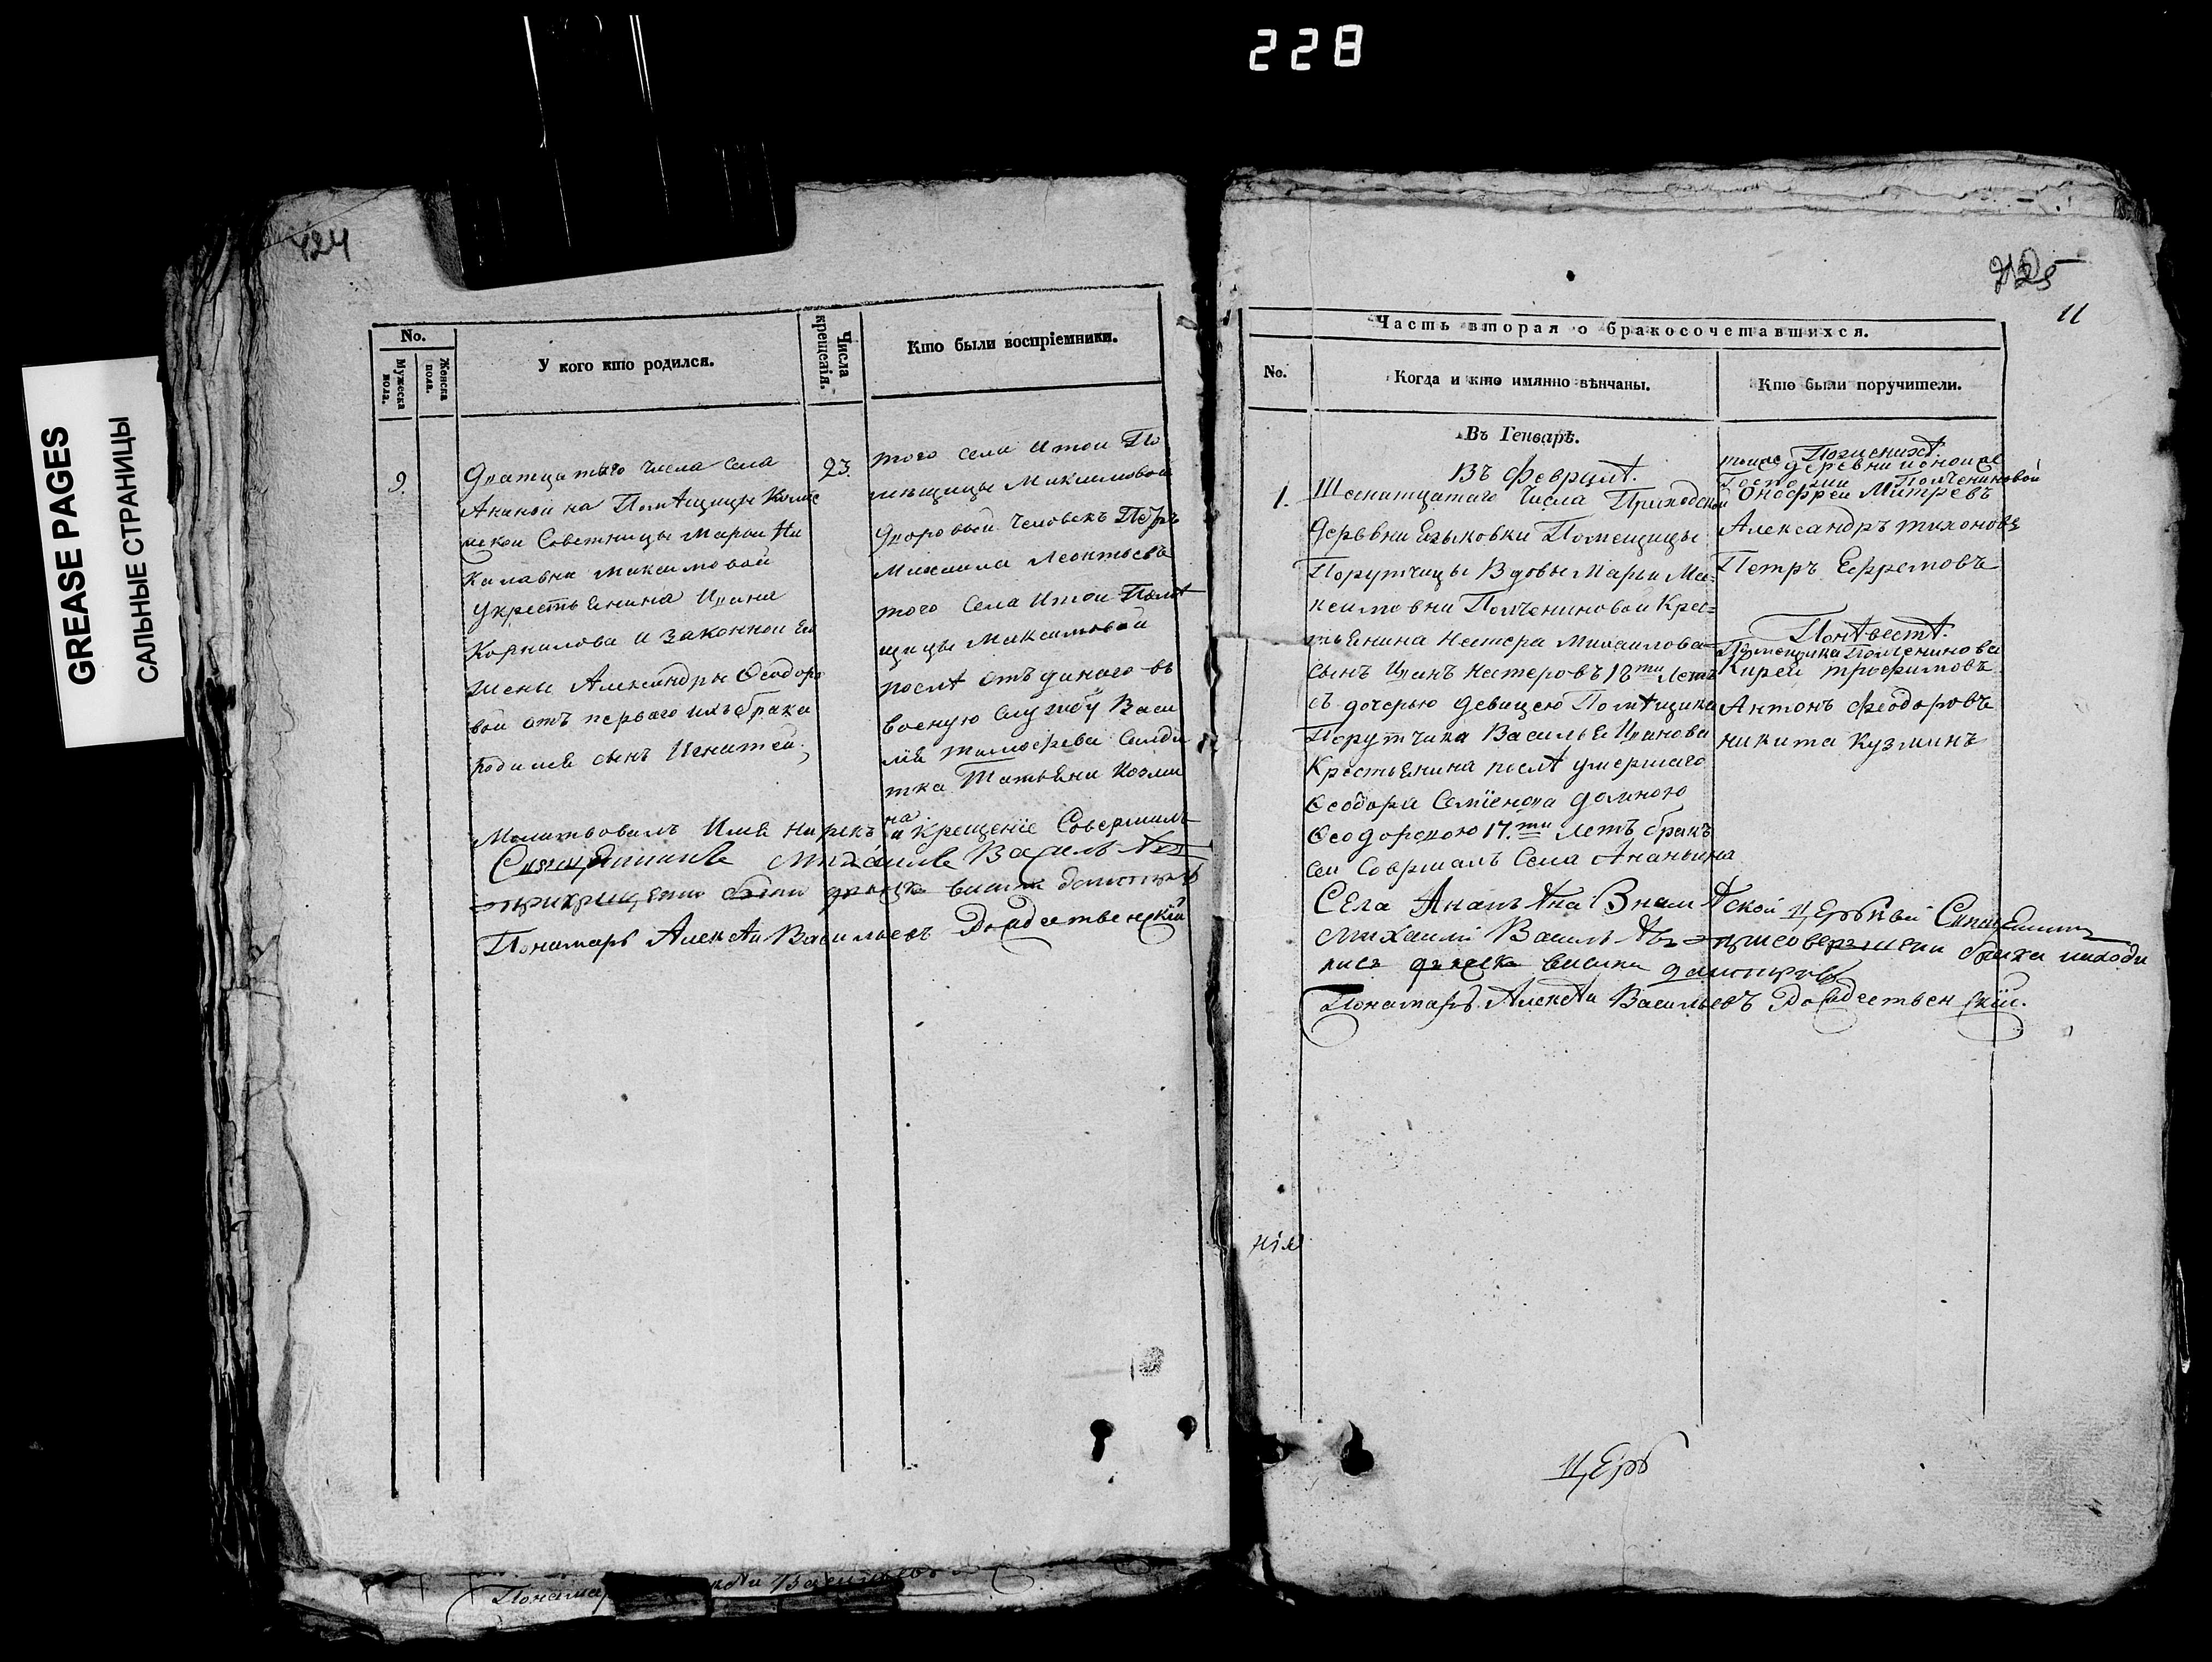 228
GREASE PAGES
САЛЬНЫЕ СТРАНИЦЫ
424
No.
Мужеска пола.
Женска пола.
У кого кто родился.
Числа крещенія.
Кто были воспріемники.
9.
Дватцатаго числа села
Ананьина Помѣщицы Колле
жской Советницы Марьи Ни
калавны Максимовой
у крестьянина Ивана
Корнилова и законной Ея
жены Александры Ѳеодоро
вой отъ перваго ихъ брака
родился сынъ Игнатей,
23.
того села и той По
мещицы Максимовой
дворовый человекъ Петръ
Михаила Леонтьева
того села и той Помѣ
щицы Максимовой
послѣ отъданаго въ
военую службу Васи
лья Тимофеева солда
тка Татьяна Козми
на
Молитвовалъ Имя нарекъ и крещеніе Совершилъ
Священникъ Михаилъ Васильѣвъ
при крещении были
Понамарь Алексѣй Васильевъ Рождественскій
425
11
Часть вторая о бракосочетавшихся.
No.
Когда и кто имянно вѣнчаны.
Кто были поручители.
Въ Генварѣ.
Въ Феврале.
1.
Шеснатцатаго числа Приходской
деревни Езыковки Помещицы
Порутчицы Вдовы Марьи Ма-
ксимовны Полчениновой Крес-
тьянина Нестера Михайлова
сынъ Иванъ Нестеровъ 18ти летъ
съ дочерью девицею Помѣщика
Порутчика Василья Иванова
Крестьянина послѣ умершаго
Ѳеодора Семіенова Домною
Ѳеодоровою 17.ти летъ бракъ
сей Совершалъ Села Ананьина
По женихѣ.
тойже деревни и оной же
Госпожи Полчениновой
Онофрей Митревъ
Александръ Тихоновъ
Петръ Ефремовъ
По невестѣ.
Помещика Полченинова
Кирей Трофимовъ
Антонъ Феодоровъ
Никита Кузминъ
Села Ананьѣна Знамѣской ЦЕрькви СвященникЪ
Михаилъ Васильѣвъ при совершении брака находи
лись
Понамарь Алексѣй Васильевъ Рождественскій.
нія
ЦЕрь
Понамарь Васильевъ